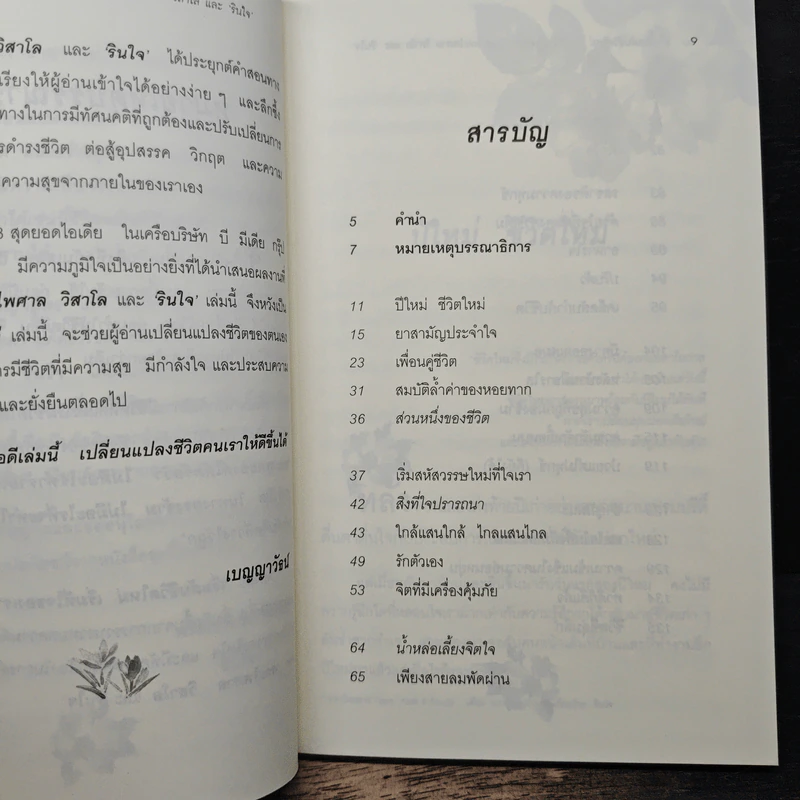 วิสาโล และ 'รินใจ' ได้ประยุกต์คำสอนทาง
เรียงให้ผู้อ่านเข้าใจได้อย่างง่าย ๆ และลึกซึ้ง
ทางในการมีทัศนคติที่ถูกต้องและปรับเปลี่ยนการ
รดำรงชีวิต ต่อสู้อุปสรรค วิกฤต และความ
ความสุขจากภายในของเราเอง
สุดยอดไอเดีย ในเครือบริษัท บี มีเดีย กรุ๊ป
มีความภูมิใจเป็นอย่างยิ่งที่ได้นำเสนอผลงานที่
ไพศาล วิสาโล และ 'รินใจ' เล่มนี้ จึงหวังเป็น
เล่มนี้ จะช่วยผู้อ่านเปลี่ยนแปลงชีวิตของตนเอง
รมีชีวิตที่มีความสุข มีกำลังใจ และประสบความ
และยั่งยืนตลอดไป
อดีเล่มนี้ เปลี่ยนแปลงชีวิตคนเราให้ดีขึ้นได้
เบญญาวัธน์
9
สารบัญ
5 คำนำ
7 หมายเหตุบรรณาธิการ
11 ปีใหม่ ชีวิตใหม่
15 ยาสามัญประจำใจ
23 เพื่อนคู่ชีวิต
31 สมบัติล้ำค่าของหอยทาก
36 ส่วนหนึ่งของชีวิต
37 เริ่มสหัสวรรษใหม่ที่ใจเรา
42 สิ่งที่ใจปรารถนา
43 ใกล้แสนใกล้ ไกลแสนไกล
49 รักตัวเอง
53 จิตที่มีเครื่องคุ้มภัย
64 น้ำหล่อเลี้ยงจิตใจ
65 เพียงสายลมพัดผ่าน